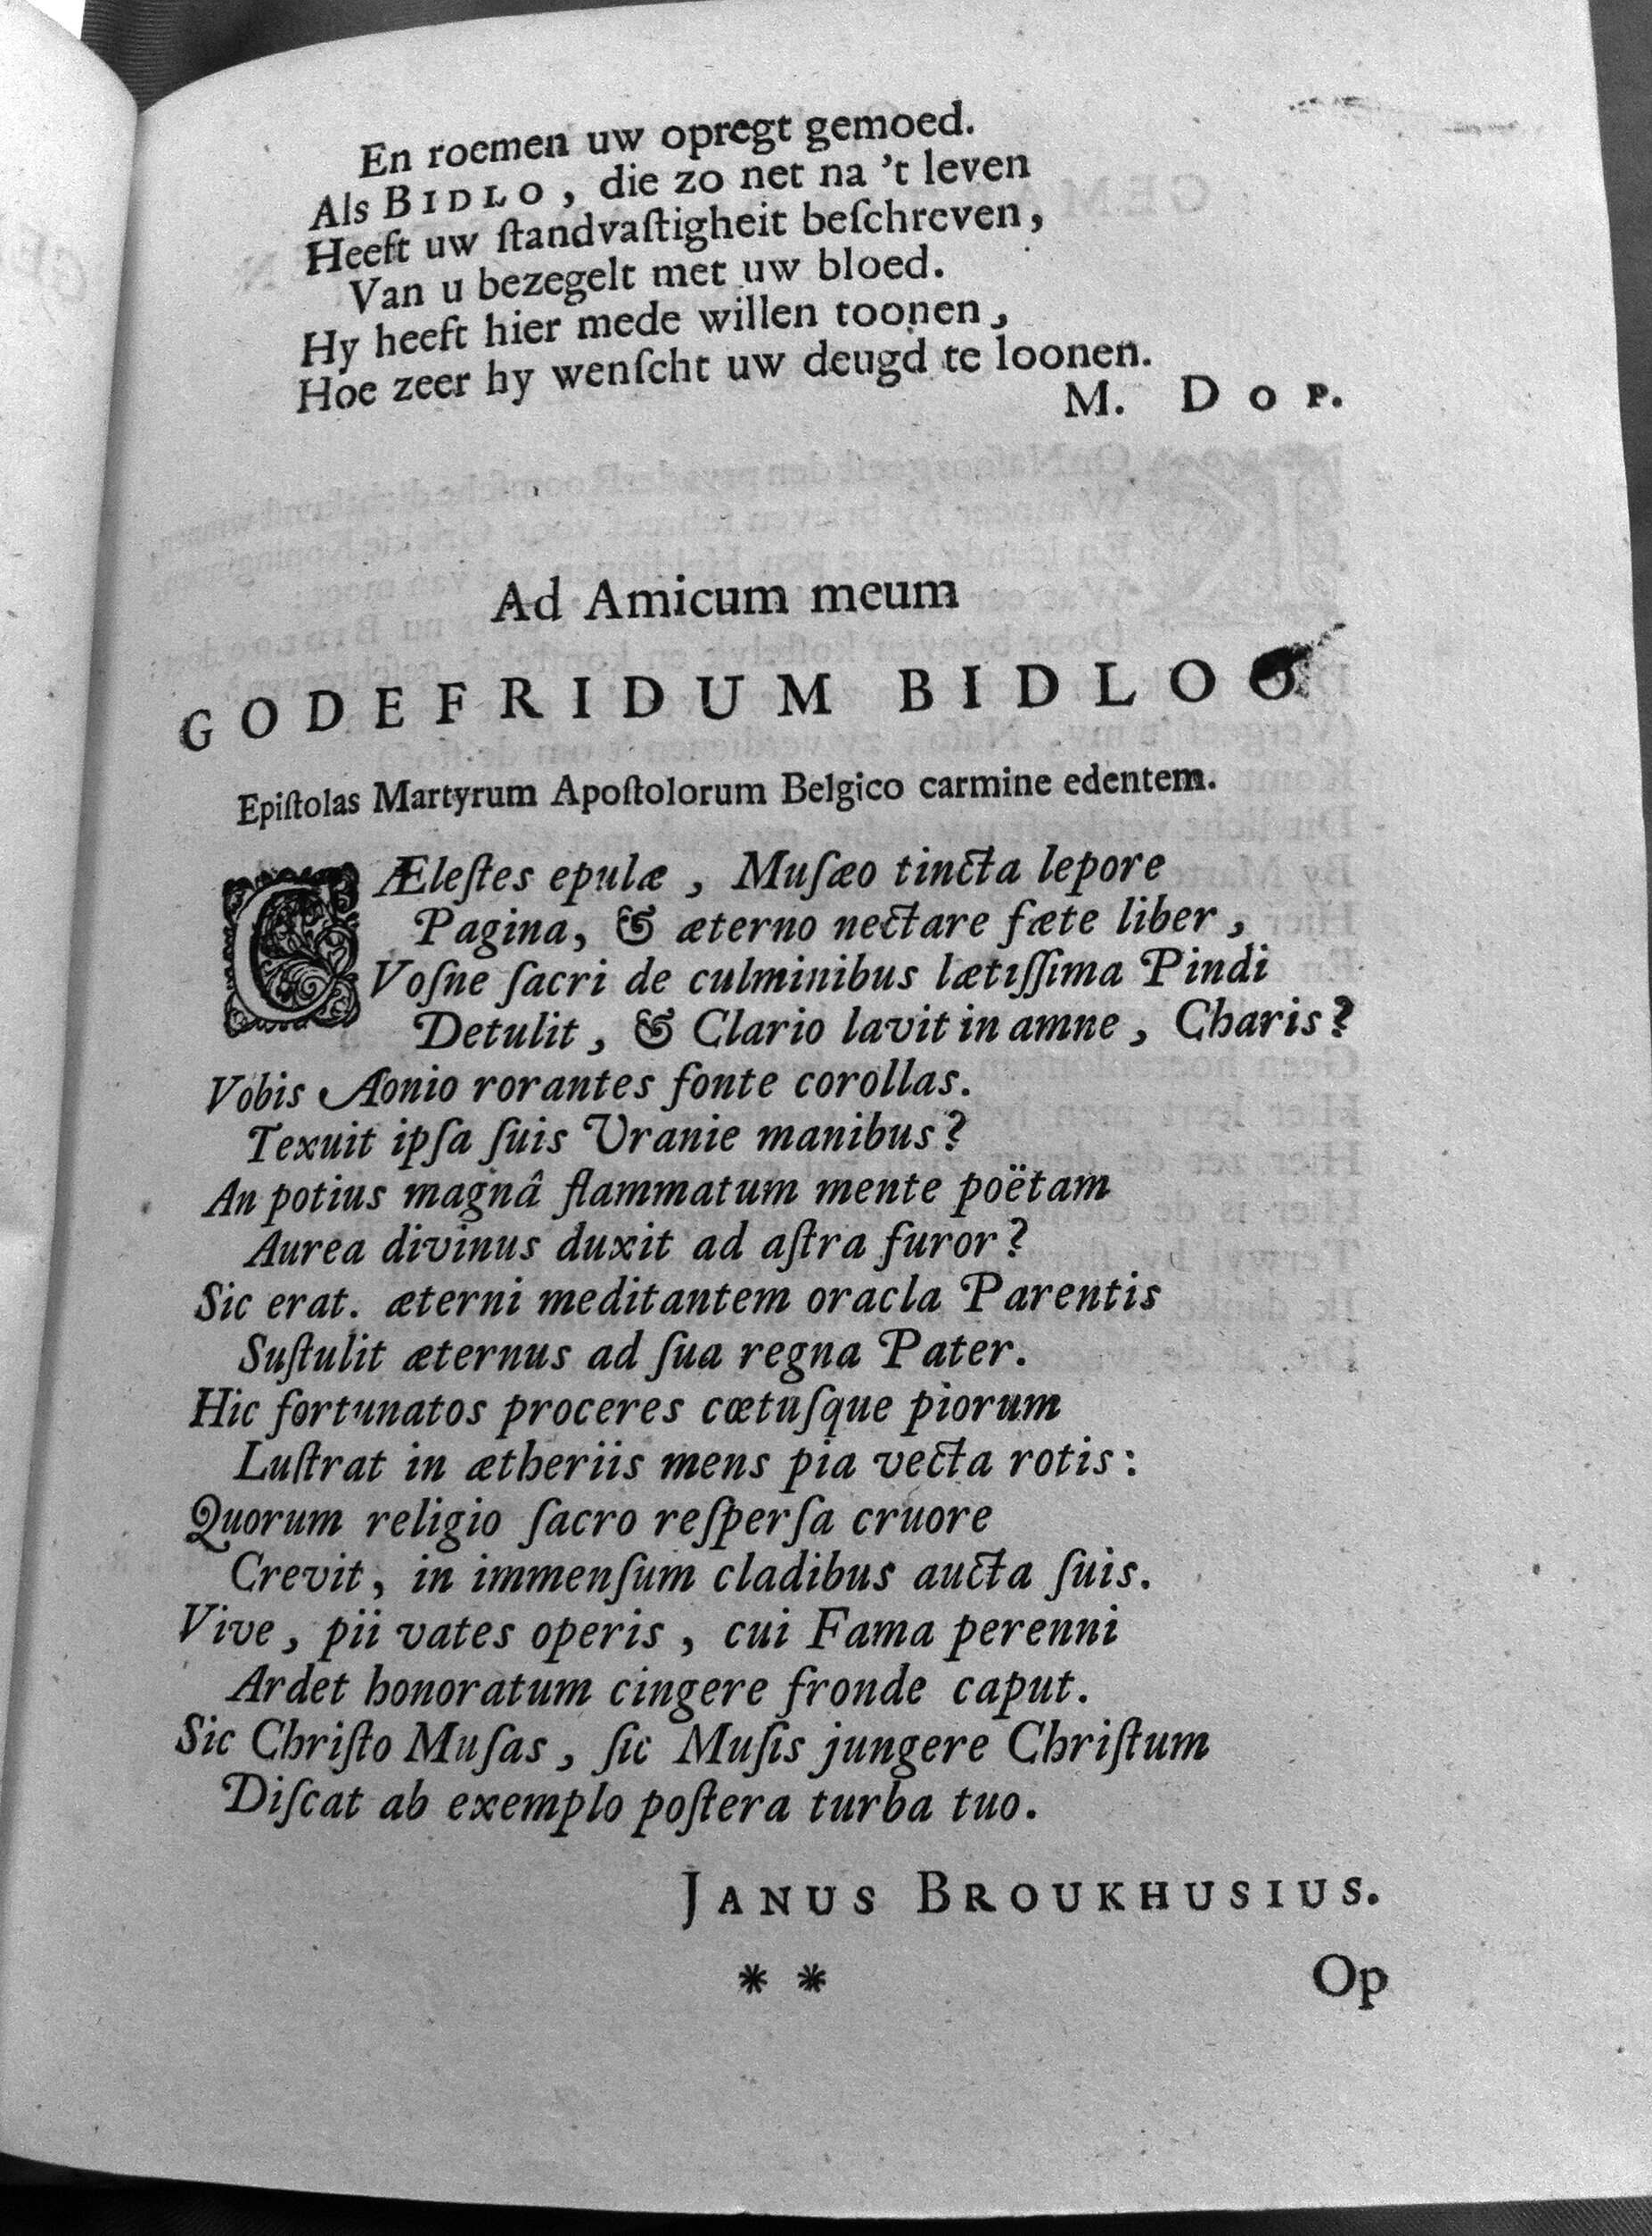 En roemen uw opregt gemoed.
Als BIDLO, die zo net na 't leven
Heeft uw ſtandvaſtigheit beſchreven,
Van u bezegelt met uw bloed.
Hy heeft hier mede willen toonen,
Hoe zeer hy wenſcht uw deugd te loonen.
M. DOP.
Ad Amicum meum
GODEFRIDUM BIDLOO
Epiſtolas Martyrum Apoſtolorum Belgico carmine edentem.
CÆleſtes epulæ, Muſæo tincta lepore
Pagina, & æterno nectare fæte liber,
Voſne ſacri de culminibus lætiſſima Pindi
Detulit, & Clario lavit in amne, Charis?
Vobis Aonio rorantes fonte corollas.
Texuit ipſa ſuis Uranie manibus?
An potius magnâ flammatum mente poëtam
Aurea divinus duxit ad aſtra furor?
Sic erat. æterni meditantem oracla Parentis
Suſtulit æternus ad ſua regna Pater.
Hic fortunatos proceres cœtuſque piorum
Luſtrat in ætheriis mens pia vecta rotis:
Quorum religio ſacro reſperſa cruore
Crevit, in immenſum cladibus aucta ſuis.
Vive, pii vates operis, cui Fama perenni
Ardet honoratum cingere fronde caput.
Sic Chriſto Muſas, ſic Muſis jungere Chriſtum
Diſcat ab exemplo poſtera turba tuo.
JANUS BROUKHUSIUS.
* * Op